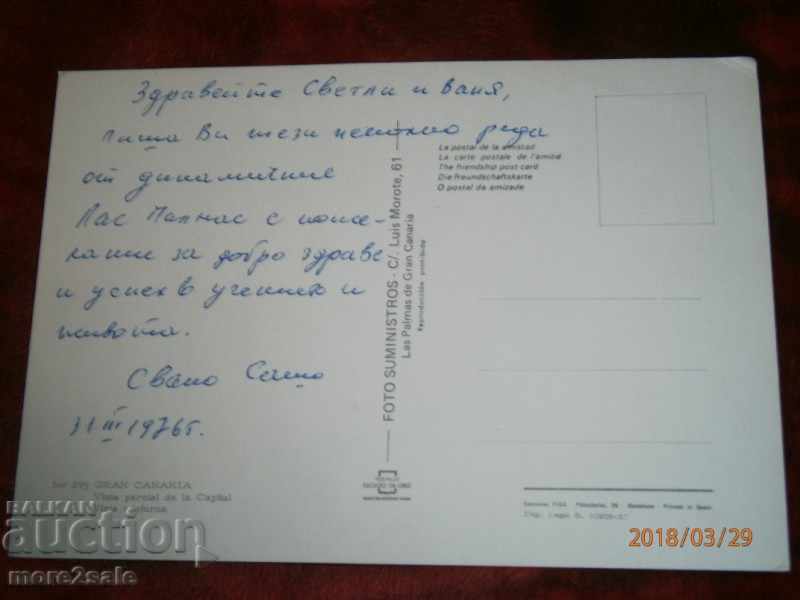 Здравейте Светли и Ваня,
пиша Ви тези няколко реда
от динамичние
Лас Палмас с поже-
лание за добро здраве
и успех в учението и
живота.
Свако Сашо
31 III 1976 г.
GRAN CANARIA
Vista parcial de la Capital
Vista nocturna
FOTO SUMINISTROS - C/. Luis Morote, 61
Las Palmas de Gran Canaria
Reproducción prohibida
La postal de la amistad
La carte postale de l'amitié
The friendship post card
Die Freundschaftskarte
O postal da amizade
Printed in Spain
BALKAN
auction
more2sale
2018/03/29